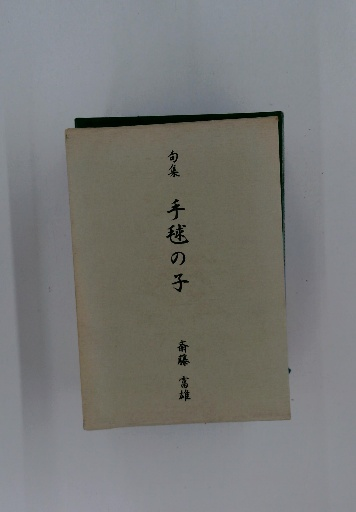 句集
手毬の子
斎藤富雄